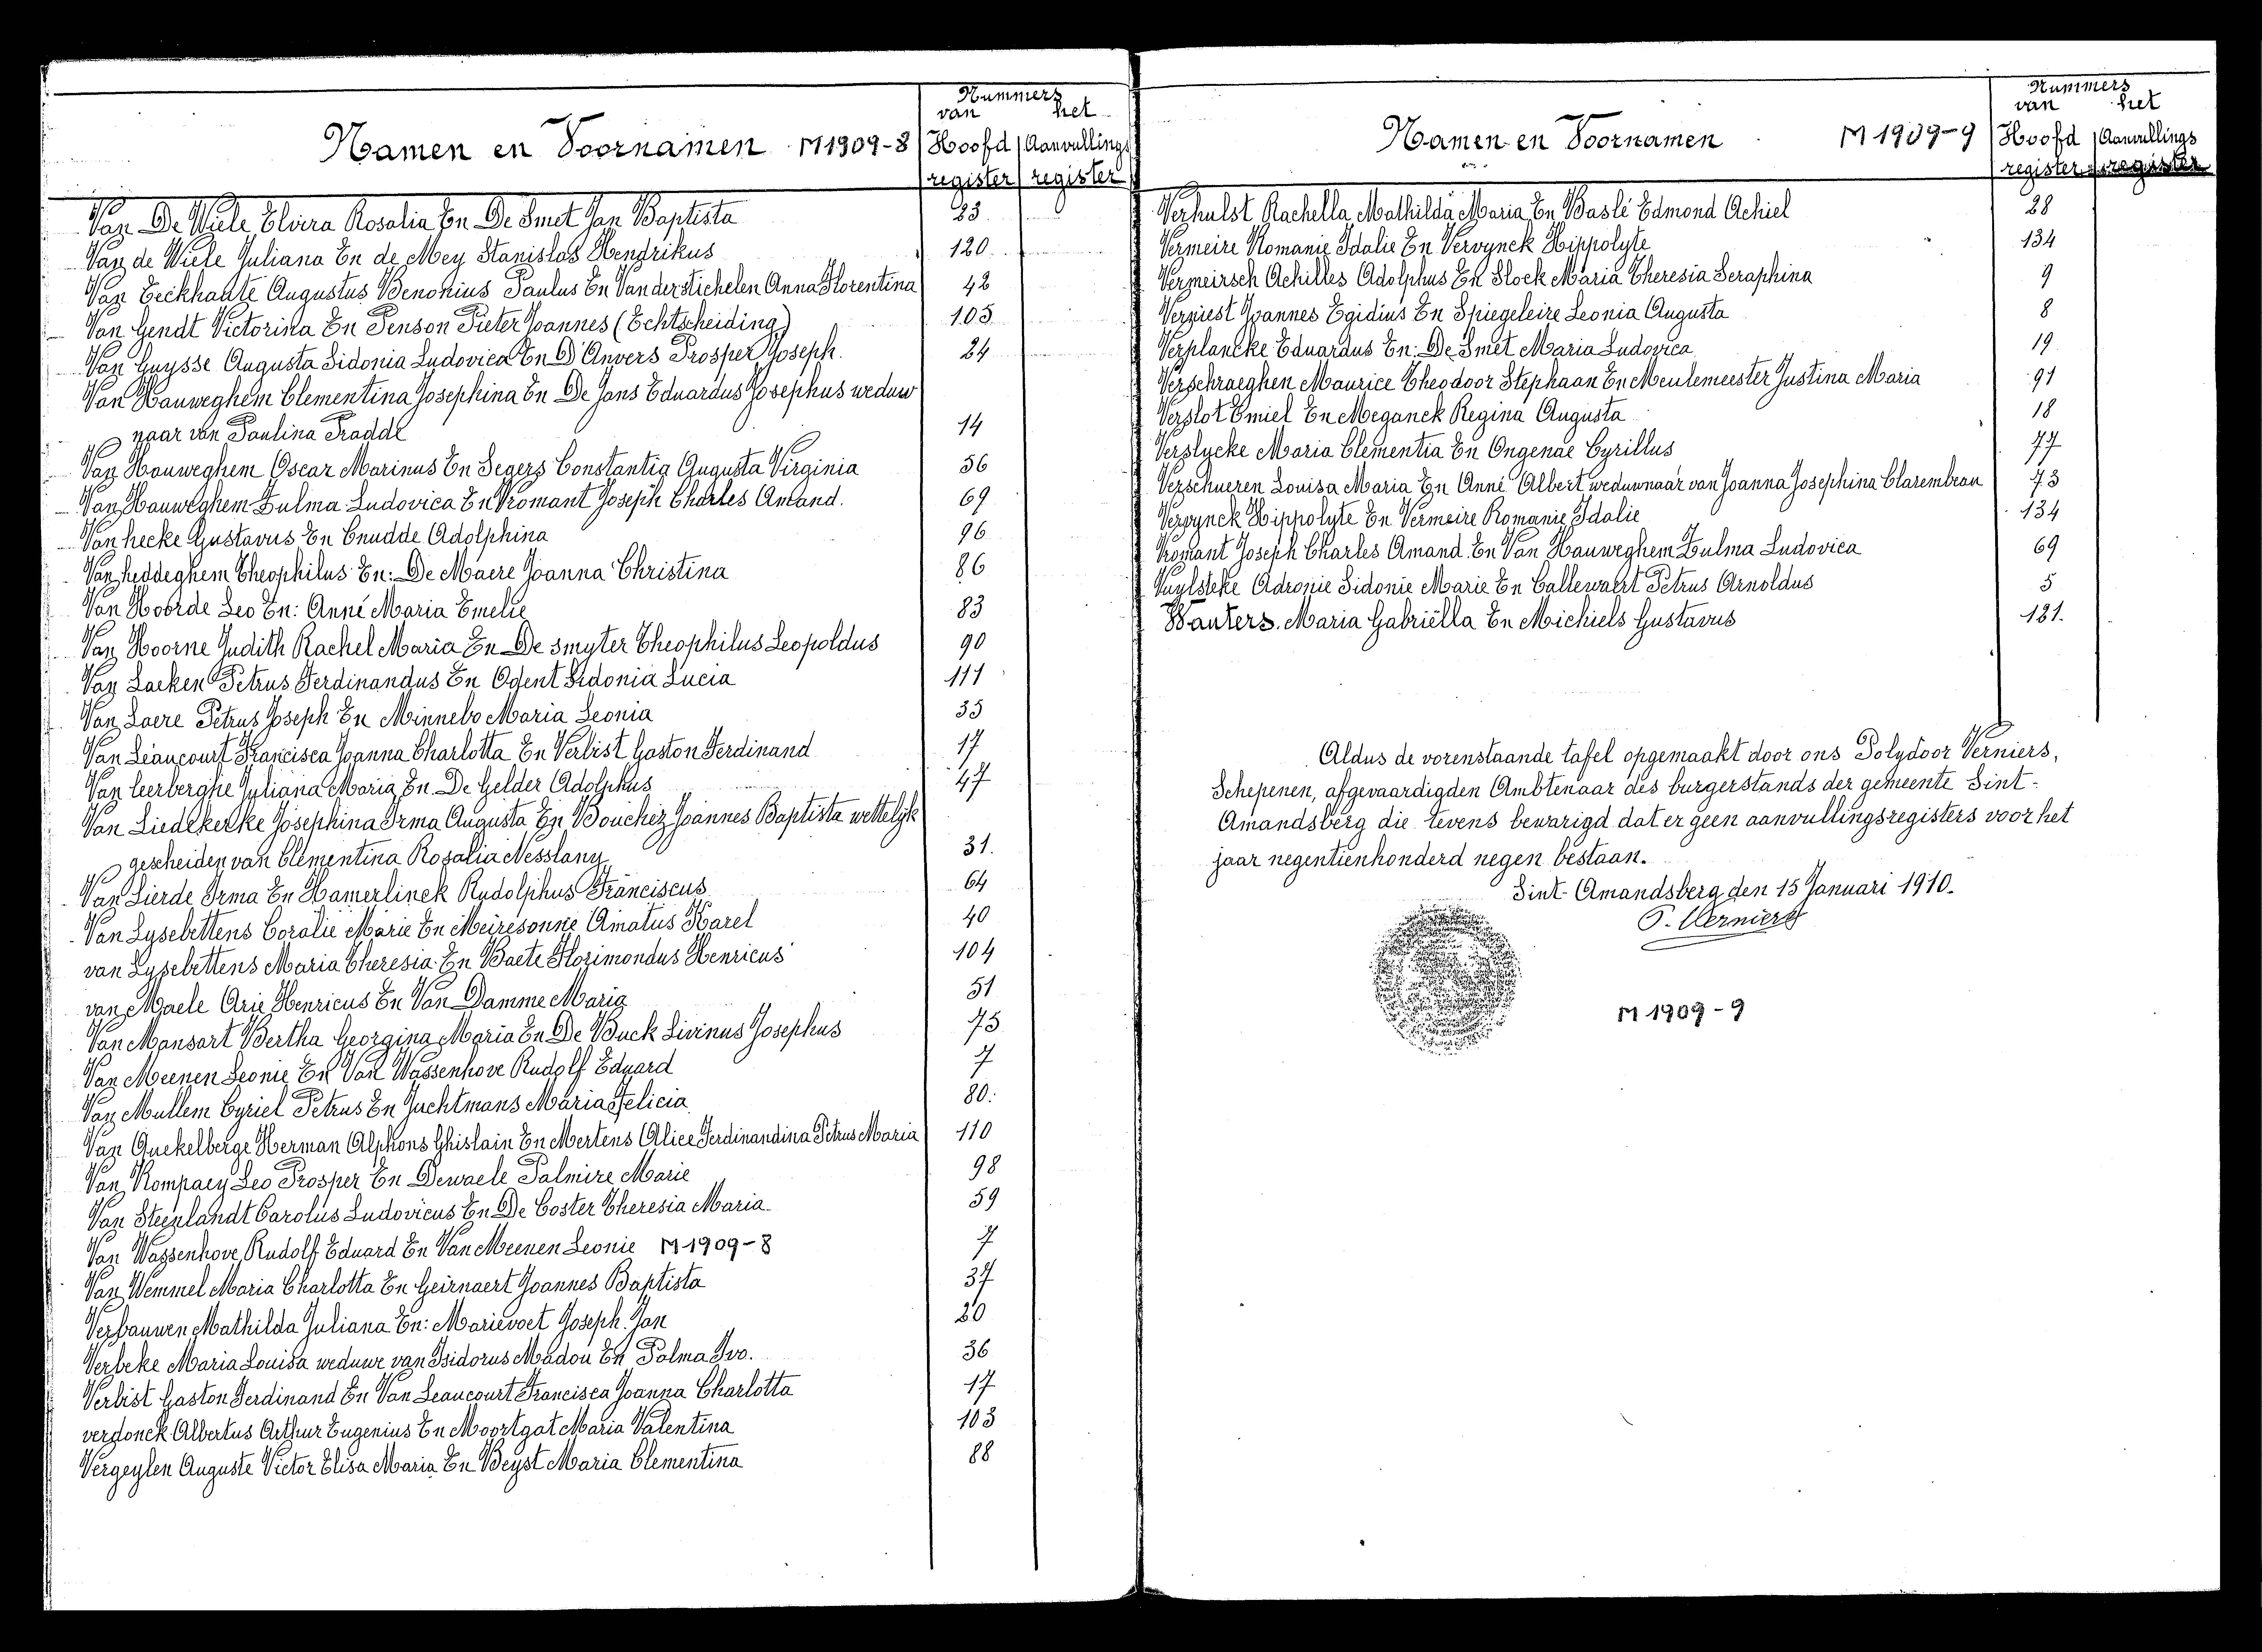 Nummers
van het
Namen en Voornamen M1909-8 Hoofd Aanvullings
register register
Van De Wiele Elvira Rosalia En De Smet Jan Baptista 23
Van de Wiele Juliana En de Mey Stanislas Hendrikus 120
Van Eeckhaute Augustus Benonius Paulus En Van der stichelen Anna Florentina 42
Van Gendt Victorina En Penson Pieter Joannes (Echtscheiding) 105
Van Guysse Augusta Sidonia Ludovica En D'Anvers Prosper Joseph. 24
Van Hauweghem Clementina Josephina En De Jans Eduardus Josephus weduw
naar van Paulina Praddt 14
Van Hauweghem Oscar Marinus En Segers Constantia Augusta Virginia 56
Van Hauweghem Zulma Ludovica En Vromant Joseph Charles Amand. 69
Van hecke Gustavus En Cnudde Adolphina 96
Van heddeghem Theophilus En: De Maere Joanna Christina 86
Van Hoorde Leo En: Anné Maria Emelie 83
Van Hoorne Judith Rachel Maria En De smyter Theophilus Leopoldus 90
Van Laeken Petrus Ferdinandus En Odent Sidonia Lucia 111
Van Laere Petrus Joseph En Minnebo Maria Leonia 35
Van Leaucourt Francisca Joanna Charlotta En Verbist Gaston Ferdinand 17
Van leerberghe Juliana Maria En De Gelder Adolphus 47
Van Liedekerke Josephina Irma Augusta En Bouchez Joannes Baptista wettelijk
gescheiden van Clementina Rosalia Nesslany 31.
Van Lierde Irma En Hamerlinck Rudolphus Franciscus 64
Van Lysebettens Coralie Marie En Meiresonne Amatus Karel 40
van Lysebettens Maria Theresia En Baete Florimondus Henricus 104
van Maele Arie Henricus En Van Damme Maria 51
Van Mansart Bertha Georgina Maria En De Buck Livinus Josephus 75
Van Meenen Leonie En Van Wassenhove Rudolf Eduard 7
Van Mullem Cyriel Petrus En Juchtmans Maria Felicia 80.
Van Quekelberge Herman Alphons Ghislain En Mertens Alice Ferdinandina Petrus Maria 110
Van Rompaey Leo Prosper En Dewaele Palmire Marie 98
Van Steenlandt Carolus Ludovicus En De Coster Theresia Maria 59
Van Wassenhove Rudolf Eduard En Van Meenen Leonie M1909-8 7
Van Wemmel Maria Charlotta En Geirnaert Joannes Baptista 37
Verbauwen Mathilda Juliana En: Marievoet Joseph Jan 20
Verbeke Maria Louisa weduwe van Isidorus Madou En Polma Ivo. 36
Verbist Gaston Ferdinand En Van Leaucourt Francisca Joanna Charlotta 17
verdonck Albertus Arthur Eugenius En Moortgat Maria Valentina 103
Vergeylen Auguste Victor Elisa Maria En Beyst Maria Clementina 88
Nummers
van het
Namen en Voornamen M1909-9 Hoofd Aanvullings
register register
Verhulst Rachella Mathilda Maria En Baslé Edmond Achiel 28
Vermeire Romanie Idalie En Vervynck Hippolyte 134
Vermeirsch Achilles Adolphus En Stock Maria Theresia Seraphina 9
Verniest Joannes Egidius En Spiegeleire Leonia Augusta 8
Verplancke Eduardus En: De Smet Maria Ludovica 19
Verschraeghen Maurice Theodoor Stephaan En Meulemeester Justina Maria 91
Verslot Emiel En Meganck Regina Augusta 18
Verslycke Maria Clementia En Ongenae Cyrillus 77
Verschueren Louisa Maria En Anné Albert weduwnaar van Joanna Josephina Clarembeau 73
Vervynck Hippolyte En Vermeire Romanie Idalie 134
Vromant Joseph Charles Amand En Van Hauweghem Zulma Ludovica 69
Vuylsteke Adronie Sidonie Marie En Callewaert Petrus Arnoldus 5
Wauters. Maria Gabriëlla En Michiels Gustavus 121.
Aldus de vorenstaande tafel opgemaakt door ons Polydoor Verniers,
Schepenen, afgevaardigden Ambtenaar des burgerstands der gemeente Sint-
Amandsberg die tevens bewarigd dat er geen aanvullingsregisters voor het
jaar negentienhonderd negen bestaan.
Sint-Amandsberg den 15 Januari 1910.
P. Verniers
M1909-9